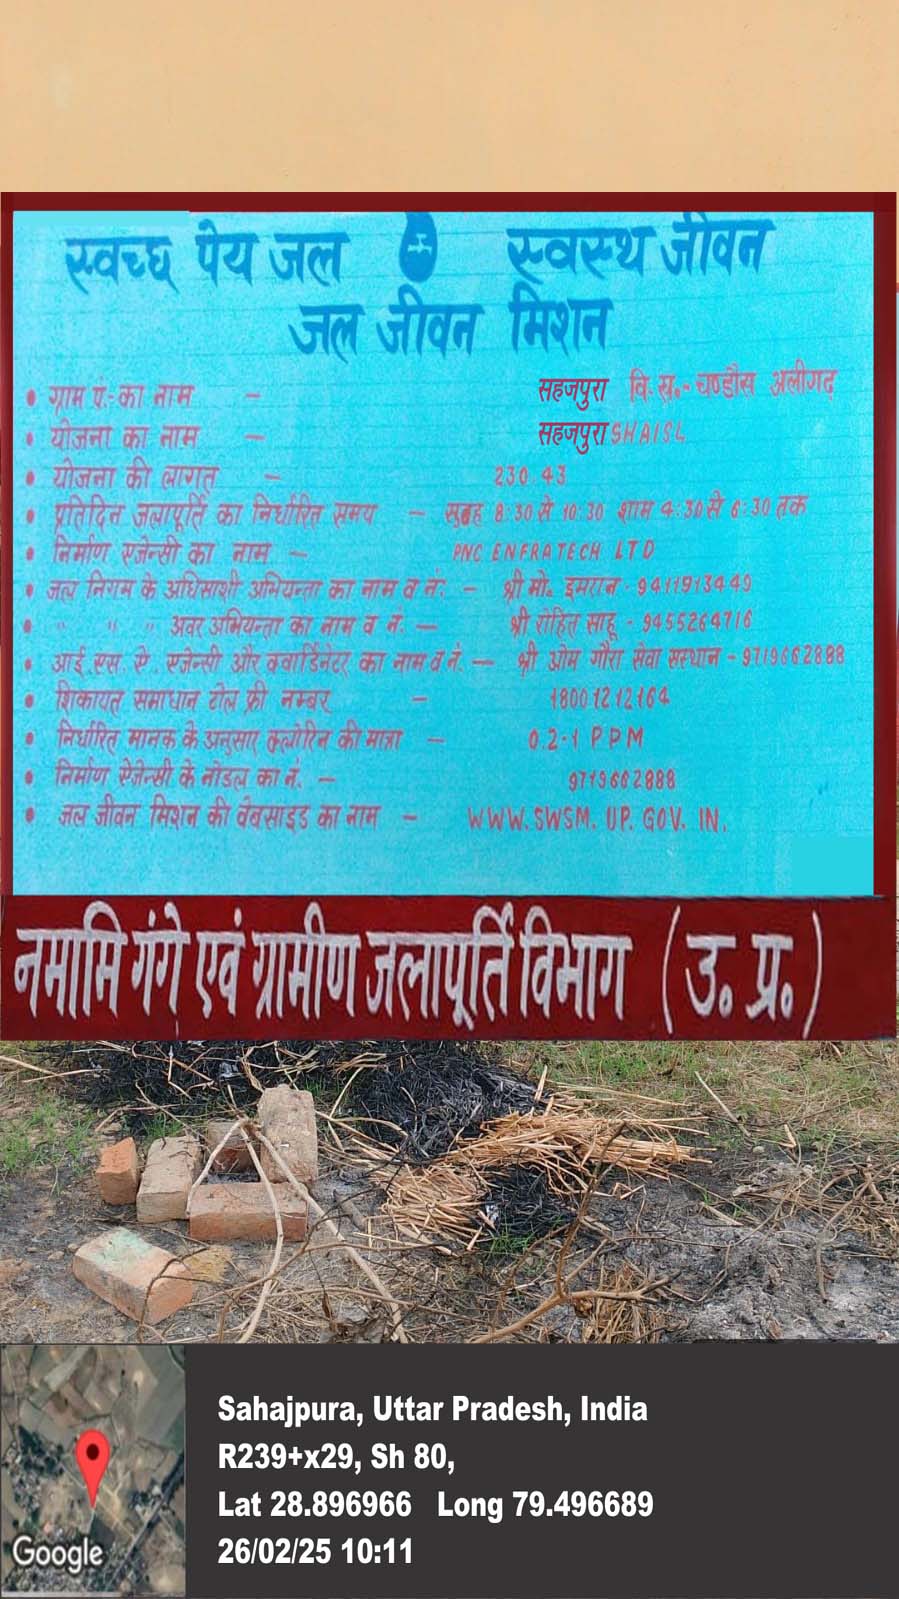 स्वच्छ पेय जल स्वस्थ जीवन
जल जीवन मिशन
• ग्राम पं.-का नाम - सहजपुरा वि.ख.- चण्डौस अलीगढ़
• योजना का नाम - सहजपुरा SHAISL
• योजना की लागत - 230.43
• प्रतिदिन जलापूर्ति का निर्धारित समय - सुबह 8:30 से 10:30 शाम 4:30 से 6:30 तक
• निर्माण एजेन्सी का नाम - PNC ENFRATECH LTD
• जल निगम के अधिसाशी अभियन्ता का नाम व नं: - श्री मो. इमरान - 9411913449
• " " " अवर अभियन्ता का नाम व नं. - श्री रोहित साहू - 9455264716
• आई. एस. ऐ. एजेन्सी और क्वार्डिनेटर का नाम व नं. - श्री ओम गौरा सेवा सस्थान - 9719662888
• शिकायत समाधान टोल फ्री नम्बर - 18001212164
• निर्धारित मानक के अनुसार क्लोरिन की मात्रा - 0.2-1 PPM
• निर्माण ऐजेन्सी के नोडल का नं. - 9719662888
• जल जीवन मिशन की वेबसाइड का नाम - WWW.SWSM.UP.GOV.IN.
नमामि गंगे एवं ग्रामीण जलापूर्ति विभाग (उ. प्र.)
Sahajpura, Uttar Pradesh, India
R239+x29, Sh 80,
Lat 28.896966 Long 79.496689
26/02/25 10:11
Google